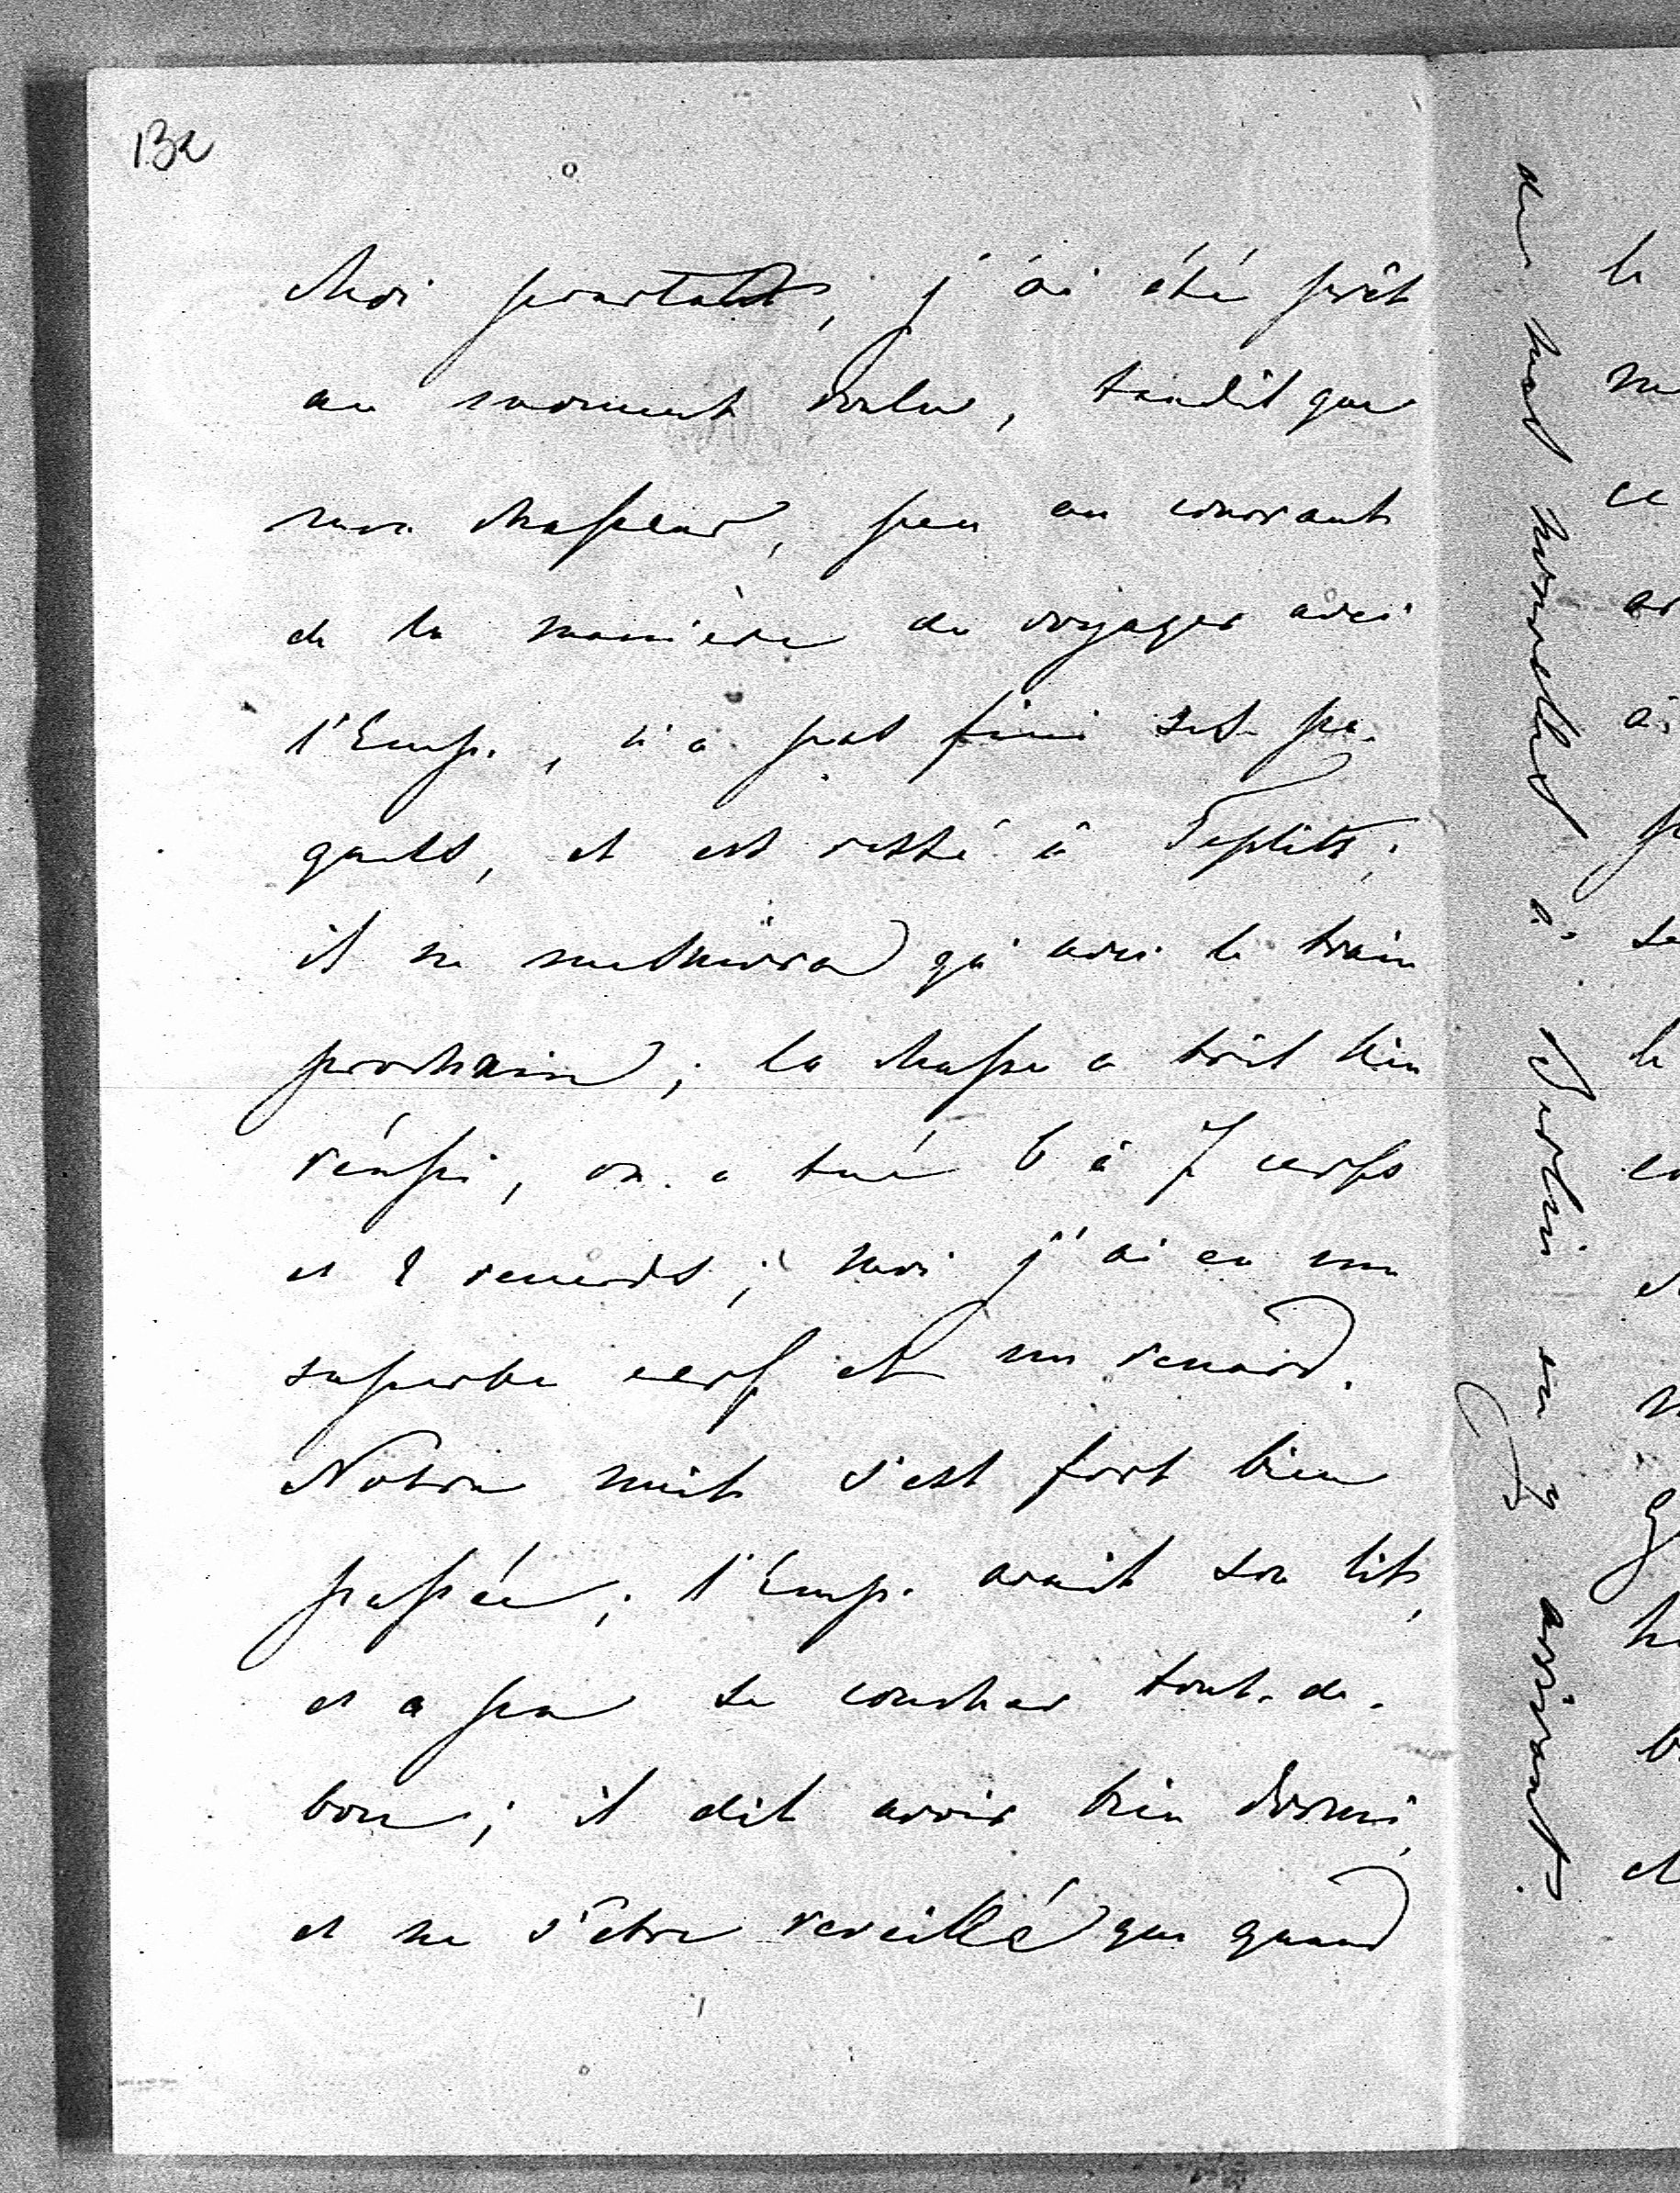 132
Moi pourtant, j'ai été prêt
au moment voulu, tandis que
mon chasseur, peu au courant
de la manière de voyager avec
l'Emp., n'a pas fini ses pa-
quets, et est resté à Teplitz;
il ne me suivra qu'avec le train
prochain; la chasse a très bien
réussi, on a tué 6 à 7 cerfs
et 2 renards; moi j'ai eu un
superbe cerf et un renard.
Notre nuit s'est fort bien
passée; l'Emp. avait son lit,
et a pu se coucher tout-de-
bon; il dit avoir bien dormi,
et ne s'être reveillé que quand
de nouvelles à Berlin en y arrivant.